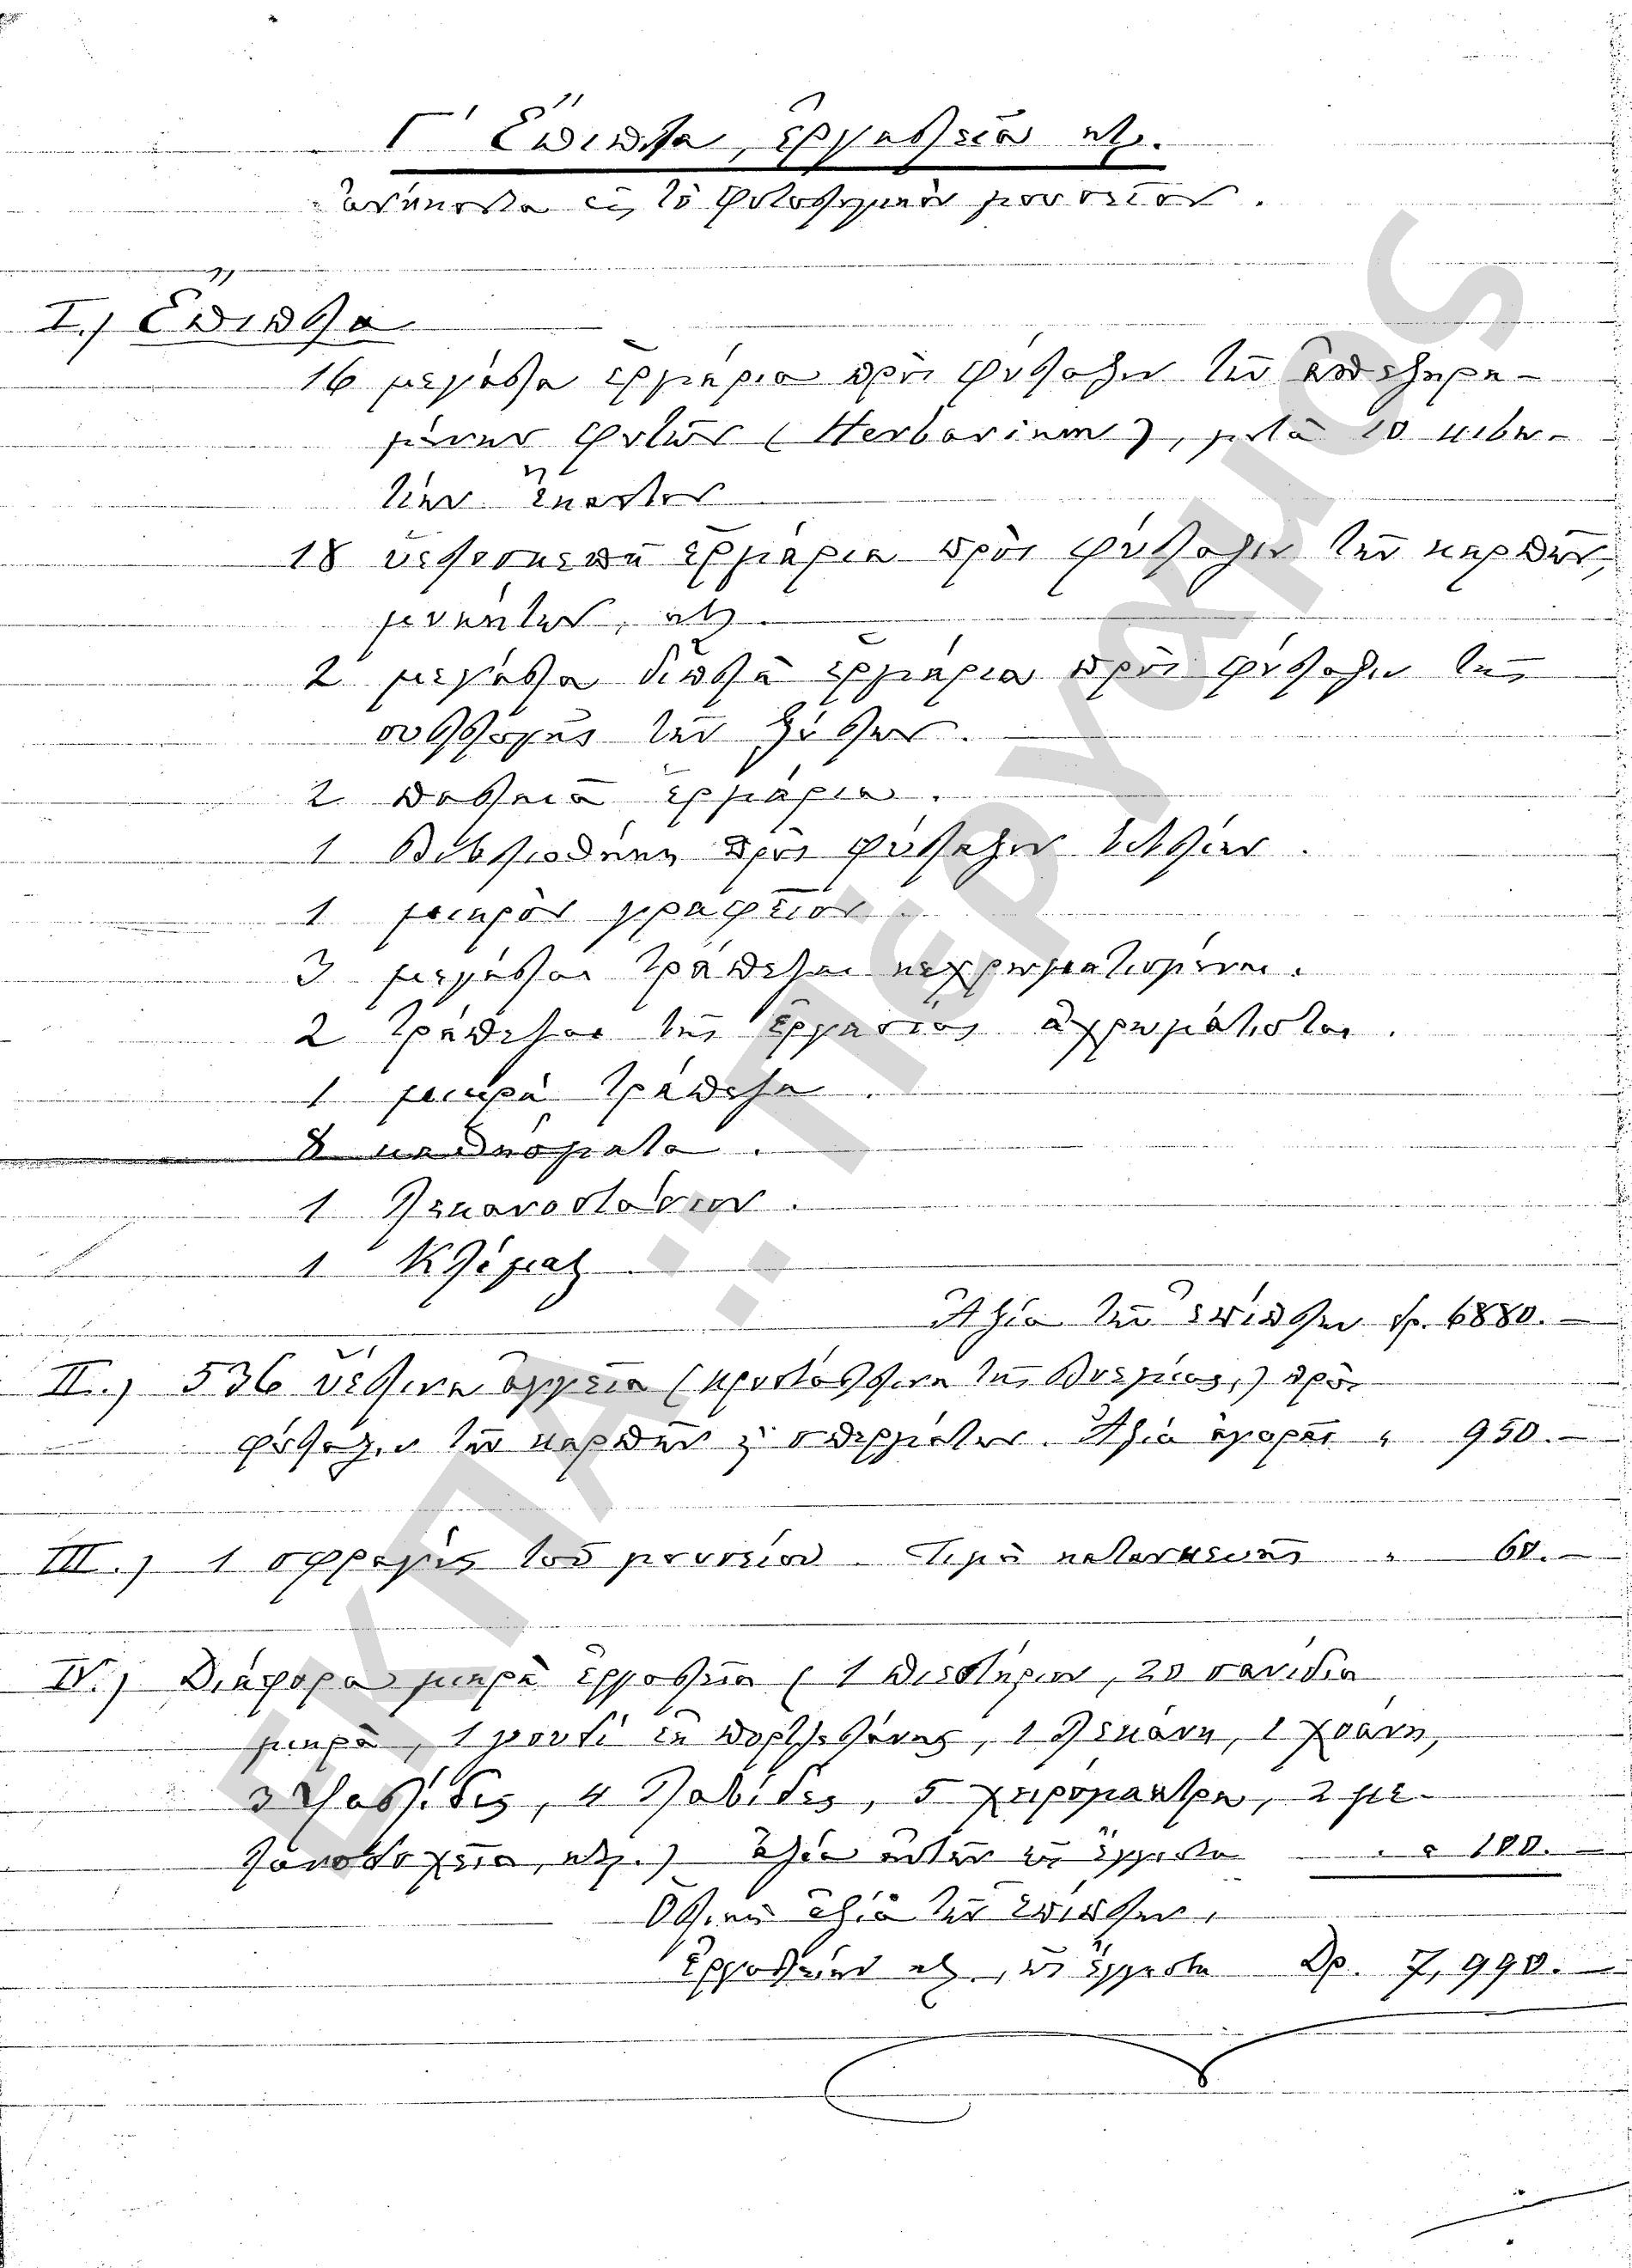 Γ' Ἔπιπλα, ἐργαλεῖα κτλ.
ἀνήκοντα εἰς τὸ φυτολογικὸν μουσεῖον.
I.) Ἔπιπλα
16 μεγάλα ἑρμάρια πρὸς φύλαξιν τῶν ἀπεξηρα-
μένων φυτῶν (Herbarium), μετὰ 10 κιβω-
τίων ἕκαστον
18 ὑελοσκεπῆ ἑρμάρια πρὸς φύλαξιν τῶν καρπῶν,
μυκήτων, κτλ.
2 μεγάλα διπλᾶ ἑρμάρια πρὸς φύλαξιν τῆς
συλλογῆς τῶν ξύλων.
2 παλαιὰ ἑρμάρια.
1 Βιβλιοθήκη πρὸς φύλαξιν βιβλίων.
1 μικρὸν γραφεῖον.
3 μεγάλαι τράπεζαι κεχρωματισμέναι.
2 τράπεζαι τῆς ἐργασίας ἀχρωμάτισται.
1 μικρὰ τράπεζα.
8 καθίσματα.
1 λεκανοστάσιον.
1 Κλίμαξ
Ἀξία τῶν ἐπίπλων δρ. 6880.—
II.) 536 ὑέλινα ἀγγεῖα (κρυστάλλινα τῆς Βοεμίας,) πρὸς
φύλαξιν τῶν καρπῶν καὶ σπερμάτων. Ἀξία ἀγορᾶς " 950.—
III.) 1 σφραγὶς τοῦ μουσείου. Τιμὴ κατασκευῆς " 60.—
IV.) Διάφορα μικρὰ ἐργαλεῖα (1 πιεστήριον, 20 σανίδια
μικρὰ, 1 γουδὶ ἐκ πορσελάνης, 1 λεκάνη, 1 χοάνη,
3 ψαλίδες, 4 λαβίδες, 5 χειρόμακτρα, 2 με-
λανοδοχεῖα, κτλ.) ἀξία αὐτῶν ὡς ἔγγιστα " 100.—
Ὁλικὴ ἀξία τῶν ἐπίπλων,
ἐργαλείων κτλ., ὡς ἔγγιστα Δρ. 7,990.—
ΕΚΠΑ :: Πέργαμος